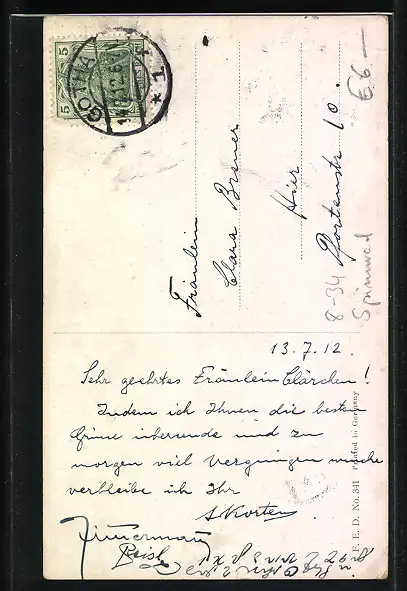 5 5
GOTHA
* 1
Fräulein
Clara Bremer
Hier
Pfortenstr 10.
E6 —
8-34
Spinnrad
13.7.12.
Sehr geehrtes Fräulein Clärchen!
Indem ich Ihnen die besten
Grüsse übersende und zu
morgen viel Vergnügen wünsche
verbleibe ich Ihr
Zimmermann
F. E. D. No. 341 Printed in Germany